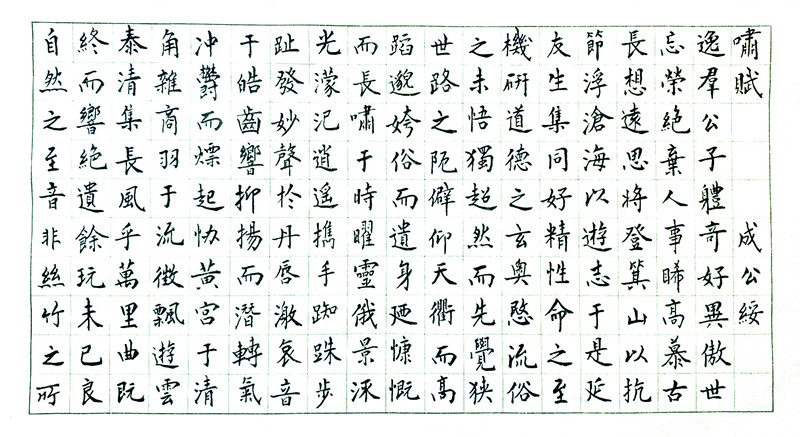 嘯賦 成公綏
逸羣公子體奇好異傲世
忘榮絶棄人事睎高慕古
長想遠思將登箕山以抗
節浮滄海以遊志于是延
友生集同好精性命之至
機研道德之玄奥愍流俗
之未悟獨超然而先覺狹
世路之阨僻仰天衢而高
蹈邈姱俗而遺身廼慷慨
而長嘯于時曜靈俄景流
光濛汜逍遥攜手踟跦步
趾發妙聲於丹唇激哀音
于皓齒響抑揚而潛轉氣
冲鬱而熛起协黄宫于清
角雜商羽于流徵飄遊雲
泰清集長風乎萬里曲既
終而響絶遺餘玩未已良
自然之至音非絲竹之所